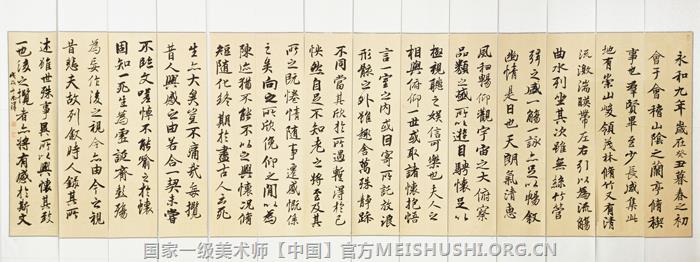 永和九年歲在癸丑暮春之初
會于會稽山陰之蘭亭脩稧
事也羣賢畢至少長咸集此
地有崇山峻領茂林脩竹又有清
流激湍暎帶左右引以為流觴
曲水列坐其次雖無絲竹管
弦之盛一觴一詠亦足以暢敘
幽情是日也天朗氣清惠
風和暢仰觀宇宙之大俯察
品類之盛所以遊目騁懷足以
極視聽之娛信可樂也夫人
相與俯仰一世或取諸懷抱悟
言一室之內或因寄所託放浪
形骸之外雖趣舍萬殊靜躁
不同當其欣於所遇暫得於己
怏然自足不知老之將至及其
所之既惓情隨事遷感慨係
之矣向之所欣俛仰之閒以為
陳迹猶不能不以之興懷況脩
短隨化終期於盡古人云死
生亦大矣豈不痛哉每攬
昔人興感之由若合一契未嘗
不臨文嗟悼不能喻之於懷
固知一死生為虛誕齊彭殤
為妄作後之視今亦由今之視
昔悲夫故列敘時人錄其所
述雖世殊事異所以興懷其致
一也後之攬者亦將有感於斯文
国家一级美术师【中国】官方MEISHUSHI.ORG.CN